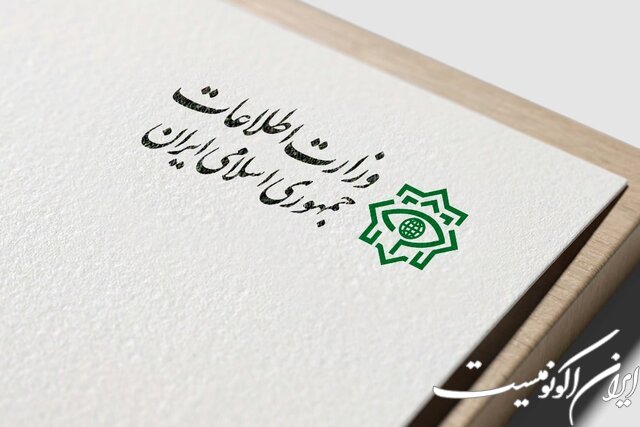 وزارت اطلاعات
جمهوری اسلامی ایران
ایران اکونومیست